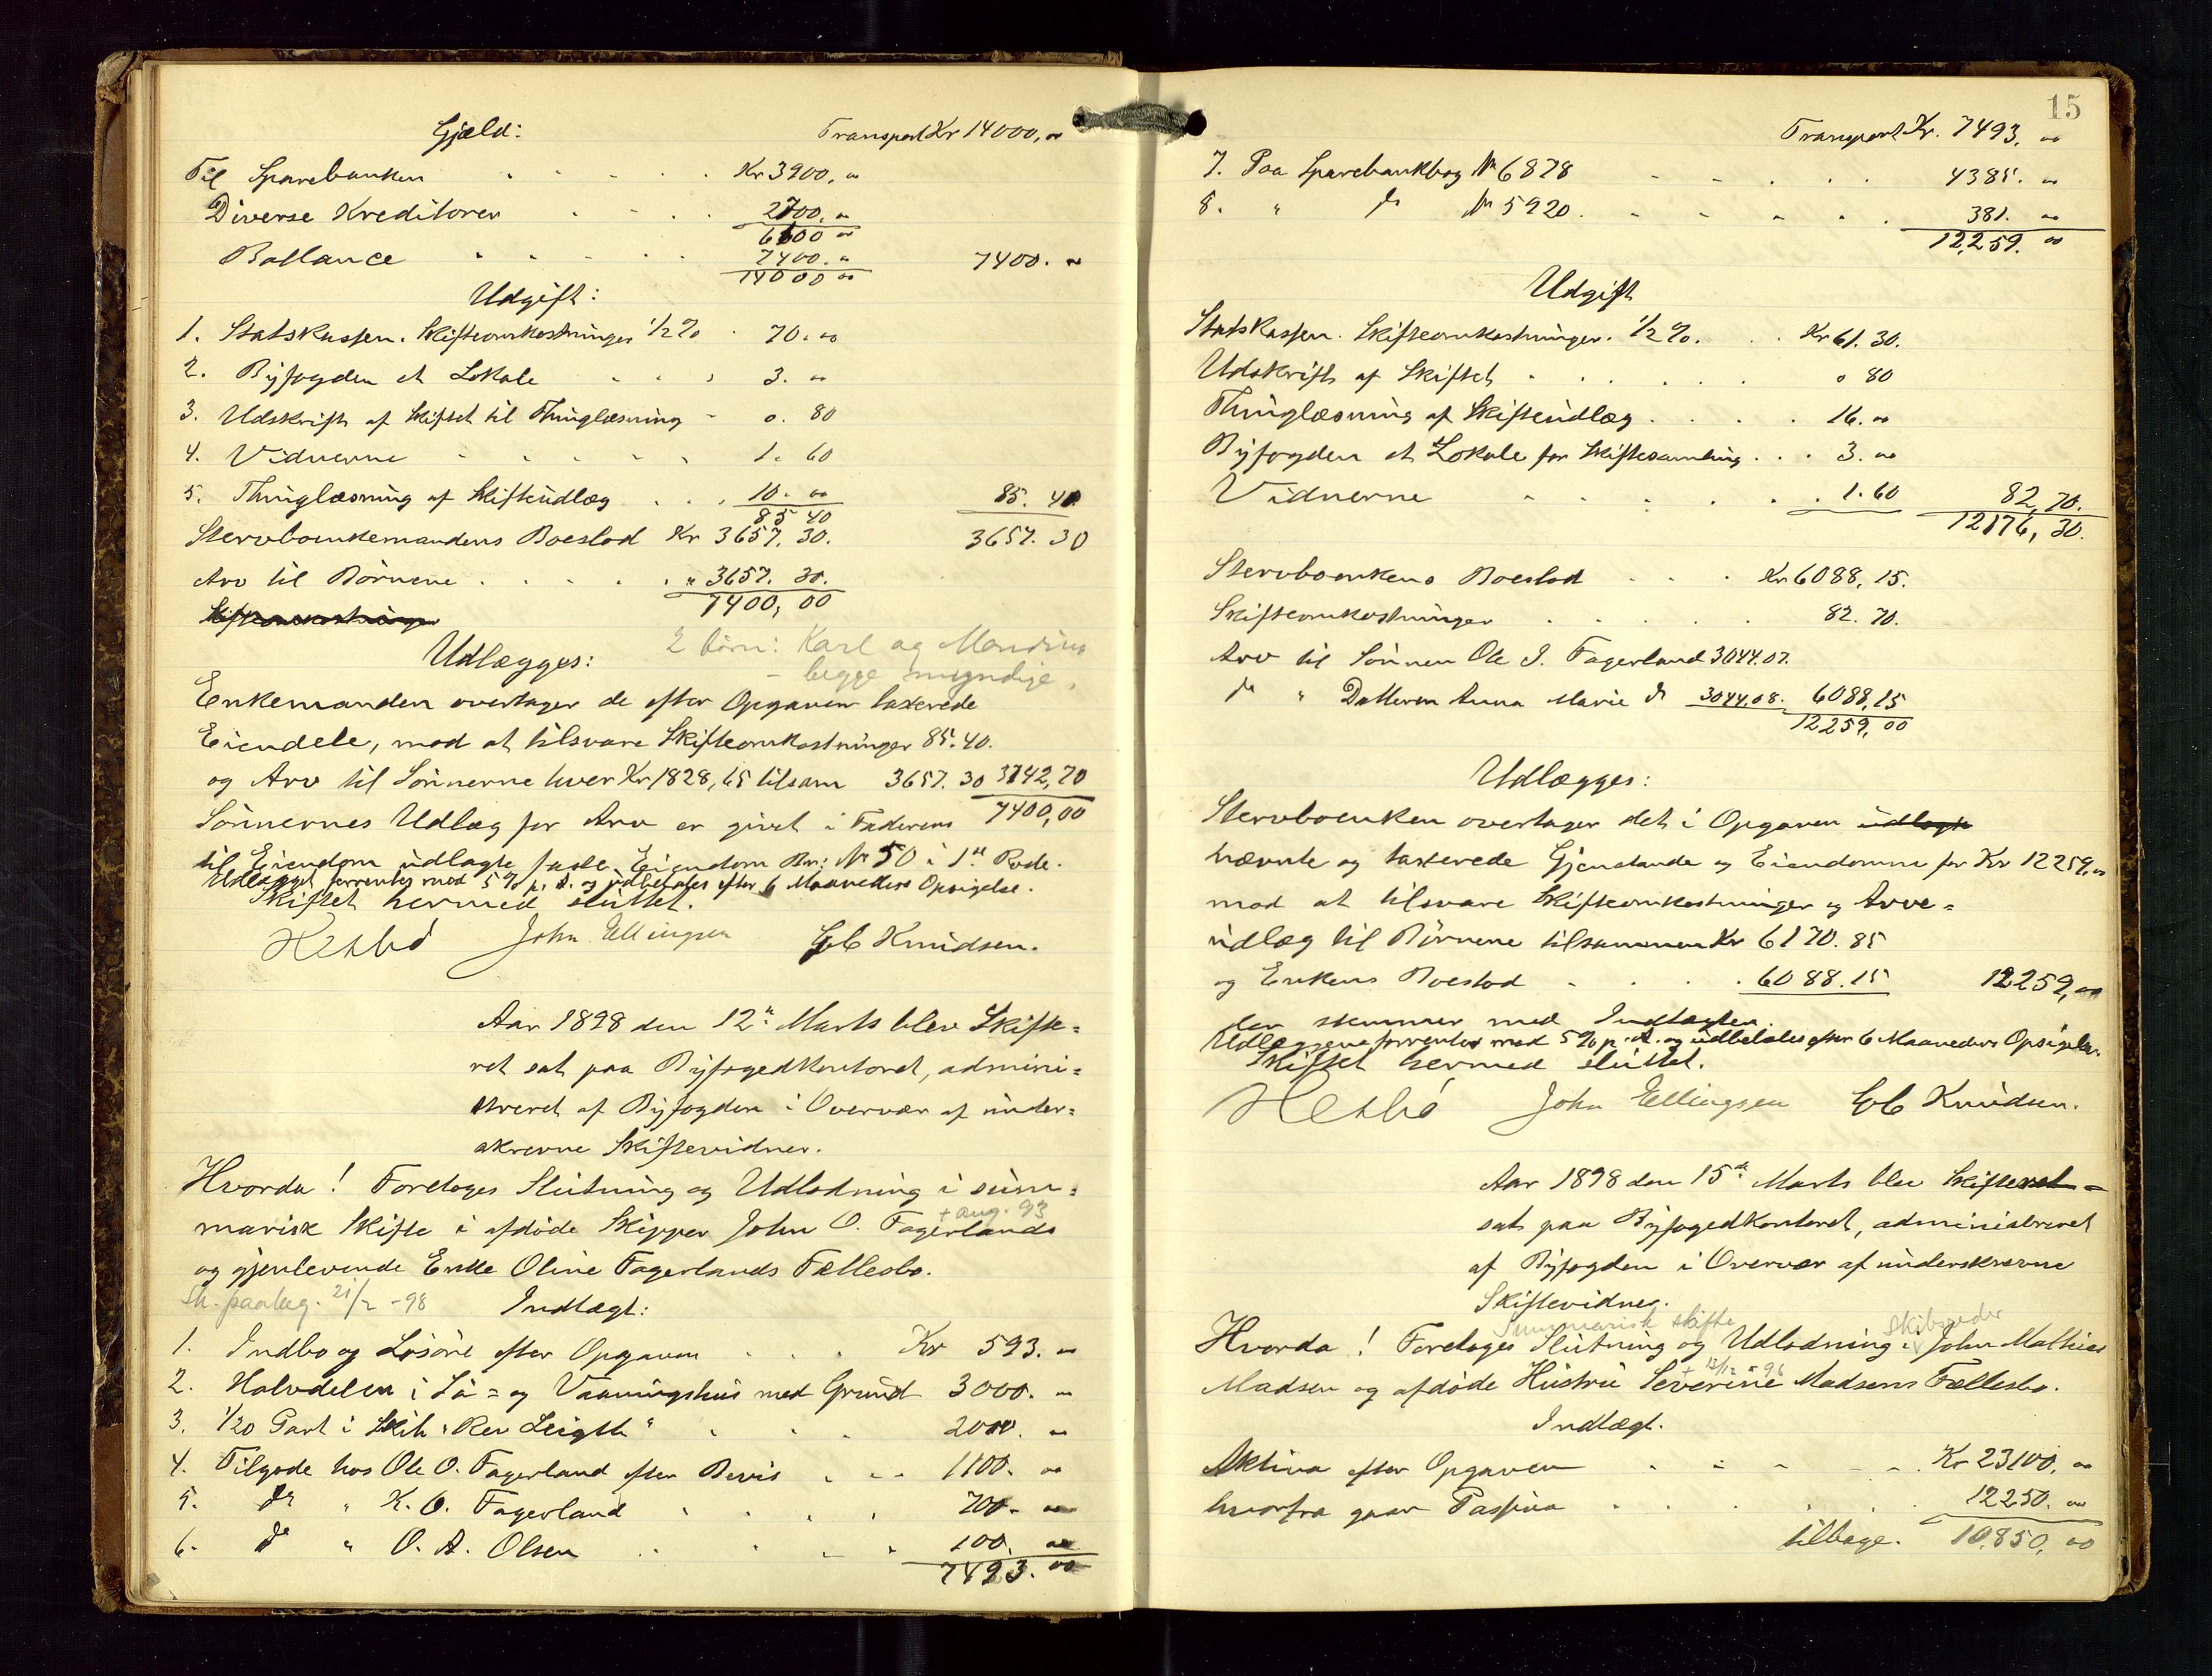 Gjæld: Transport Kr 14000,00
Til Sparebanken . . . . . Kr 3900,00
Diverse Kreditorer . . . 2700,00
6600 00
Ballance . . . . . 7400.00 7400.00
14000 00
Udgift:
1. Statskassen. Skifteomkostninger 1/2% . 70.00
2. Byfogden et Lokale . . . 3.00
3. Udskrift af Skiftet til Thinglæsning - 0.80
4. Vidnerne . . . . . 1.60
5. Thinglæsning af Skifteudlæg . . . 10.00 85.40
85 40
Stervboenkemandens Boeslod Kr 3657.30. 3657.30
Arv til Börnene . . . . . " 3657.30.
7400,00
Skifteomkostninger
2 börn: Karl og Mandius
Udlægges: - begge myndige.
Enkemanden overtager de efter Opgaven taxerede
Eiendele, mod at tilsvare Skifteomkostninger 85.40.
og Arv til Sönnerne hver Kr 1828,65 tilsam 3657.30 3742,70
7400,00
Sönnernes Udlæg for Arv er givet i Faderens
til Eiendom udlagte faste Eiendom Br: No 50 i 1ste Rode.
Udlægget forrentes med 5% p. A. og udbetales efter 6 Maaneders Opsigelse.
Skiftet hermed sluttet.
Hesbö John Ellingsen Knudsen.
Aar 1898 den 12te Marts blev Skifte=
ret sat paa Byfogedkontoret, admini=
streret af Byfogden i Overvær af under=
skrevne Skiftevidner.
Hvorda! Foretoges Slutning og Udlodning i sum=
+ aug. 93
marisk Skifte i afdöde Skipper John O. Fagerlands
og gjenlevende Enke Oline Fagerlands Fællesbo.
Sk. paabeg. 21/2 -98 Indtægt:
1. Indbo og Lösöre efter Opgaven . . . Kr 593.00
2. Halvdelen i Sö= og Vaaningshus med Grund 3000.00
3. 1/20 Part i Skib "Rev Leigth" . . . 2000.00
4. Tilgode hos Ole O. Fagerland efter Bevis . . . 1100.00
5. do " K. O. Fagerland . . . . 200.00
6. do " O. A. Olsen . . . . 100.00
7493.00
15
Transport Kr. 7493,00
7. Paa Sparebankbog No 6878 - - . . . 4385.00
8. " do No 5920 . . . . . . 381.00
12,259.00
Udgift
Statskassen. Skifteomkostninger. 1/2%. . . Kr 61.30.
Udskrift af Skiftet . . . . . . 0 80
Thinglæsning af Skifteudlæg . . . . . 16.00
Byfogden et Lokale for Skiftesamling . . . 3.00
Vidnerne . . . . . . 1.60 82,70.
12176,30.
Stervboenkens Boeslod . . . Kr 6088,15.
Skifteomkostninger . . . . . 82.70.
Arv til Sönnen Ole J. Fagerland 3044.07.
do " Datteren Anna Marie do 3044,08. 6088,15
12259,00
Udlægges:
Stervboenken overtager det i Opgaven udlagte
nævnte og taxerede Gjenstande og Eiendomme for Kr 12259,00
mod at tilsvare Skifteomkostninger og Arve=
udlæg til Börnene tilsammen Kr 6170.85
og Enkens Boeslod . . . . 6088.15 12259,00
der stemmer med Indtægten.
Udlæggene forrentes med 5% p. A. og udbetales efter 6 Maaneders Opsigelse.
Skiftet hermed sluttet.
Hesbö John Ellingsen Knudsen.
Aar 1898 den 15de Marts blev Skifteret
sat paa Byfogedkontoret, administreret
af Byfogden i Overvær af underskrevne
Skiftevidner.
Summarisk skifte skibsreder
Hvorda! Foretoges Slutning og Udlodning i John Mathias
+ 12/12 - 96
Madsen og afdöde Hustru Severine Madsens Fællesbo.
Indtægt.
Aktiva efter Opgaven . . . . . Kr 23100,00
hvorfra gaar Passiva . . . . . 12250.00
tilbage. 10,850,00